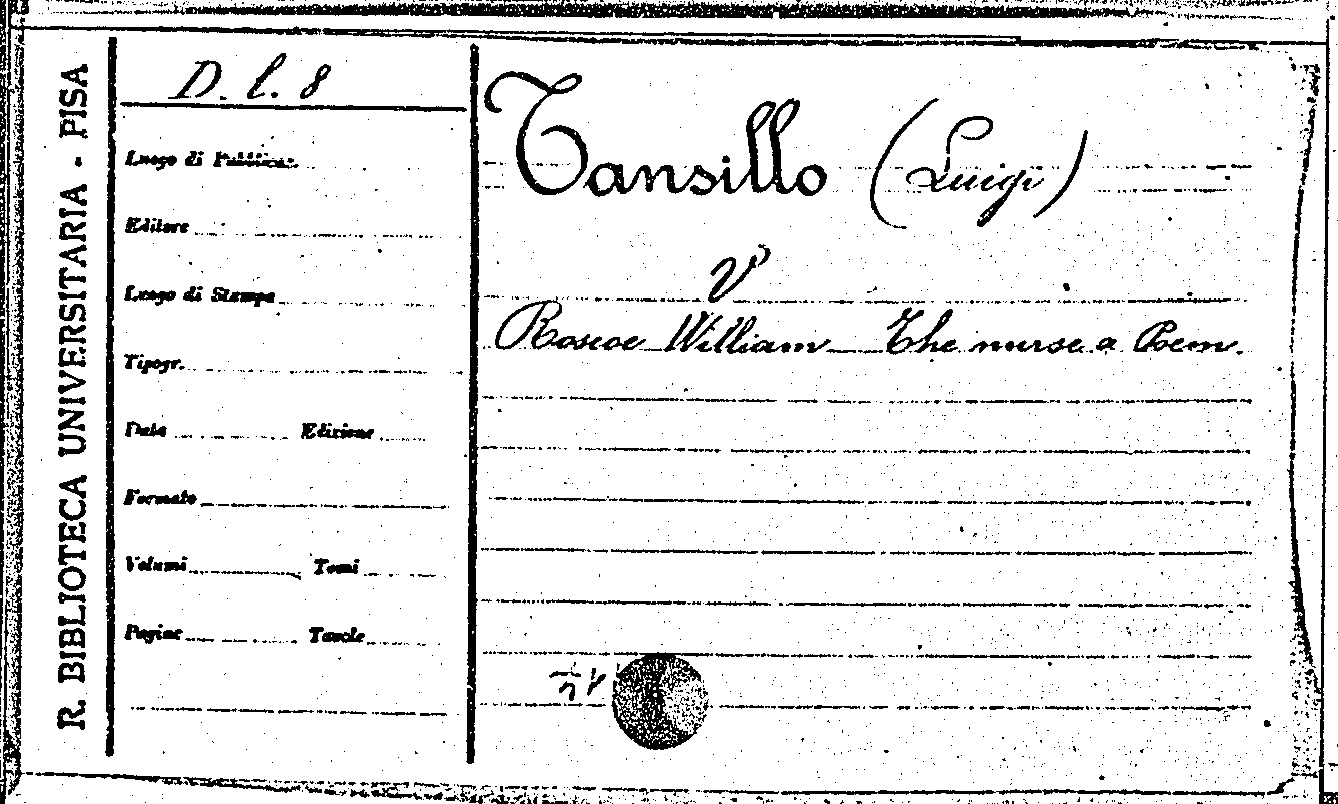 R. BIBLIOTECA UNIVERSITARIA - PISA
D. l. 8
Luogo di Pubblicaz.
Editore
Luogo di Stampa
Tipogr.
Data Edizione
Formato
Volumi Tomi
Pagine Tavole
Tansillo (Luigi)
V
Roscoe William The nurse a Poem.